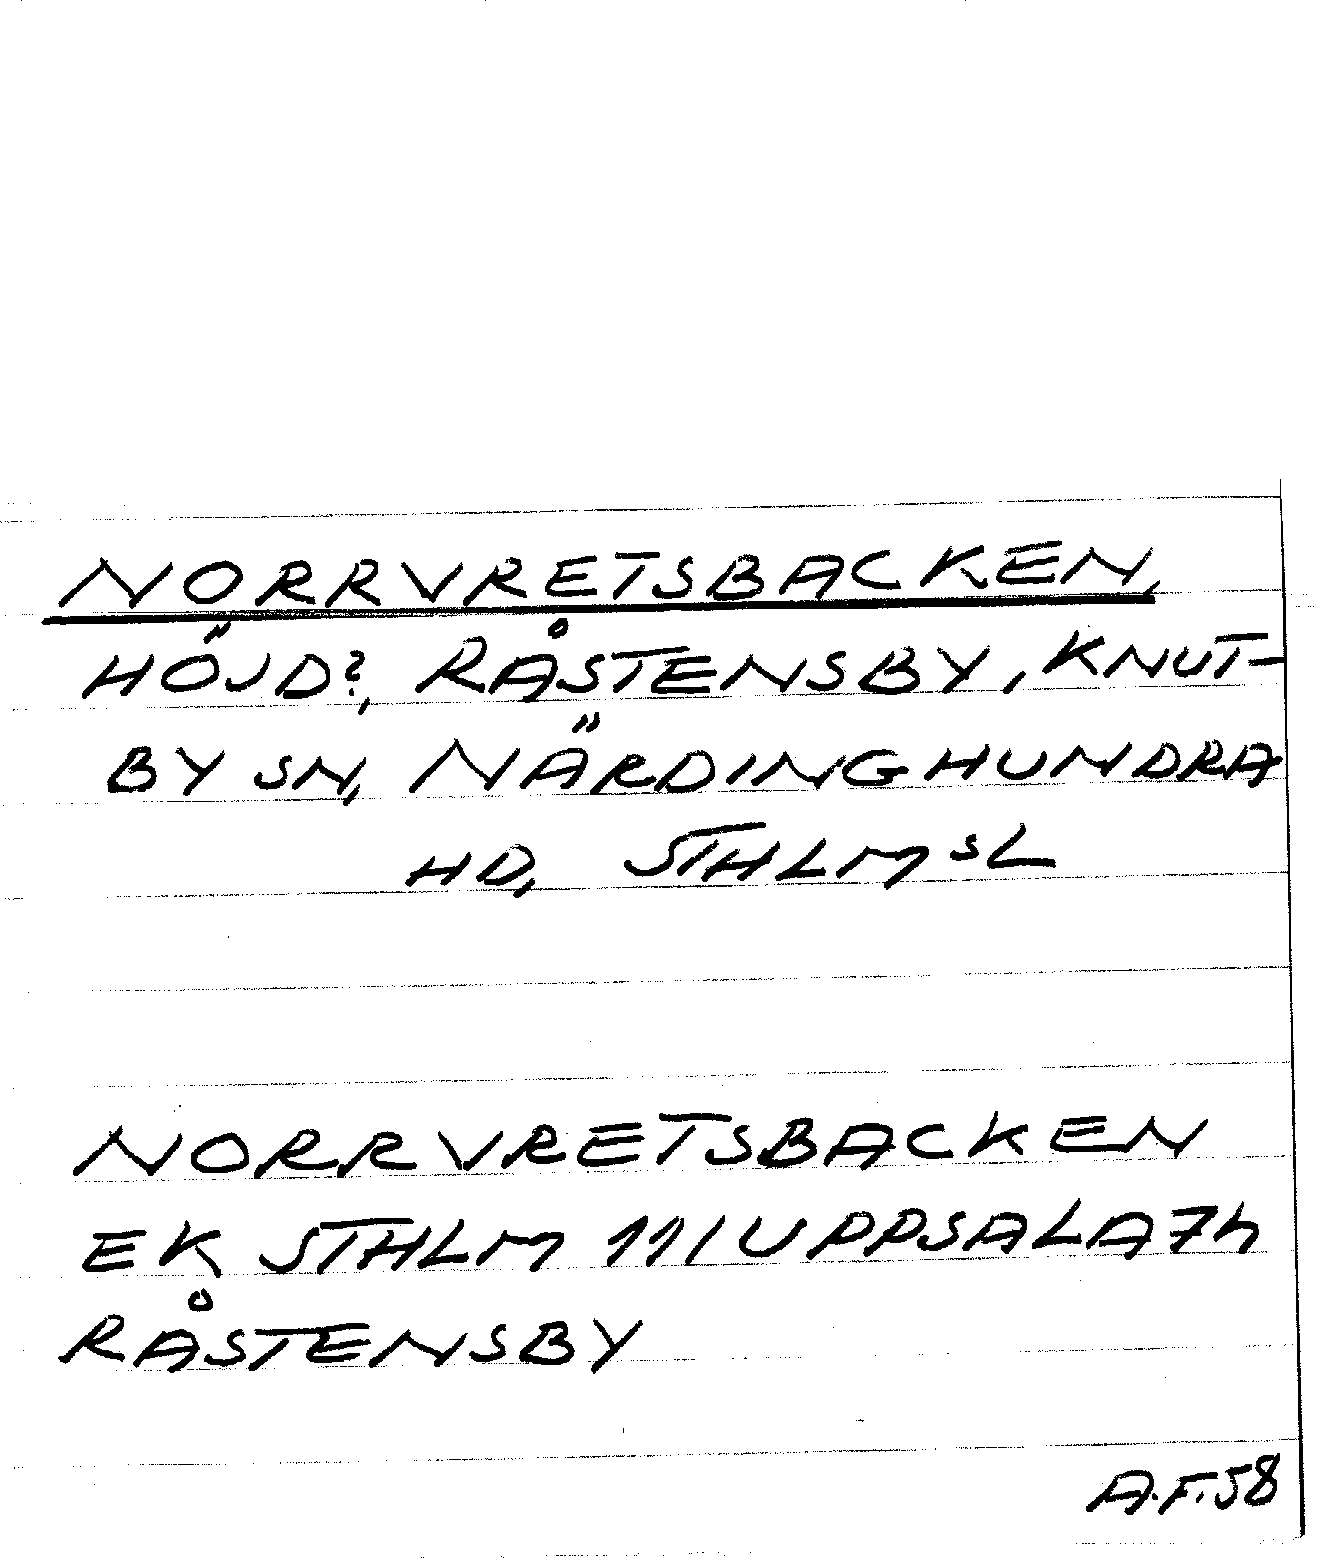 NORRVRETSBACKEN,
HÖJD?, RÅSTENSBY, KNUT-
BY SN, NÄRDINGHUNDRA
HD, STHLMSL
NORRVRETSBACKEN
EK STHLM 11/UPPSALA7h
RÅSTENSBY
A.F.58